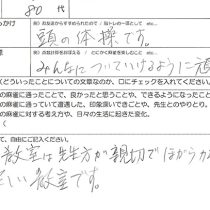 80 代
(例) お友達からすすめられたので / 脳トレの一環として etc...
頭の体操です。
(例) お数計算をお伝える / とにかく麻雀を楽しむこと etc...
みんなについていけるように頑
(どういったことについての文章なのか、口にチェックを入れてください。
の麻雀に通ったことで、良かったと思うことや、できるようになったこと
の麻雀に通っていて遭遇した、印象深いできごとや、先生とのやりとり。
の麻雀に対する考え方や、日々の生活に起きた変化。
(
て、自由にご記入ください。
教室は先生方が親切でほがらか
しい教室です。